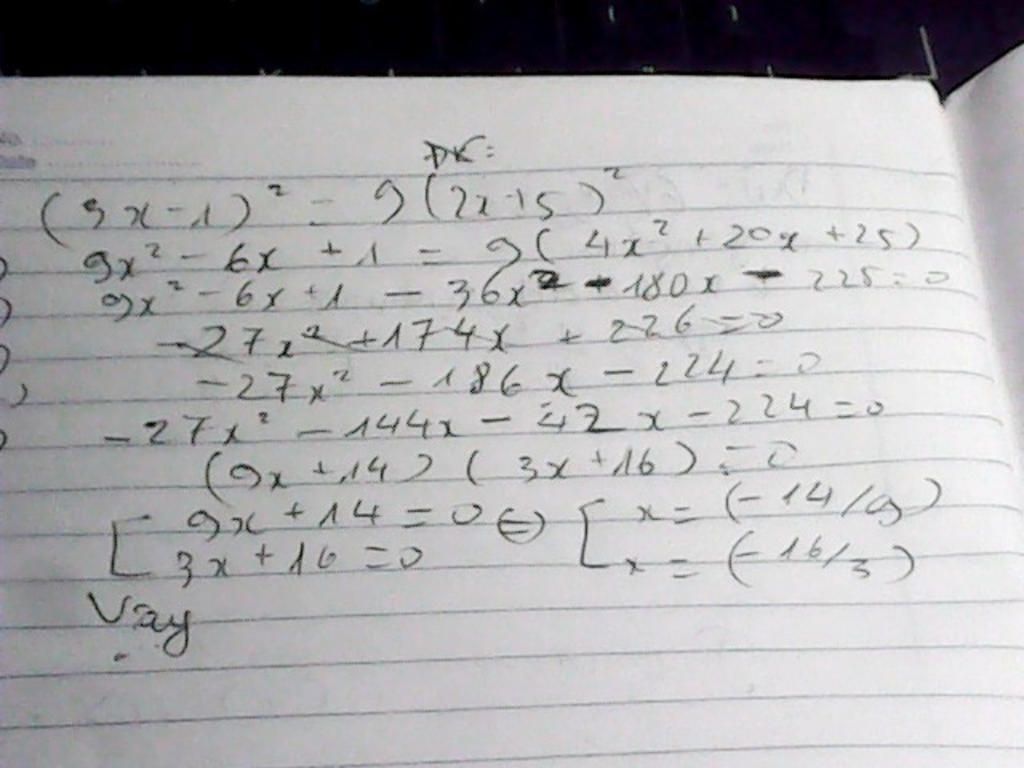 ĐK:
(3x - 1)² = 9(2x+5)²
9x² - 6x + 1 = 9(4x² + 20x + 25)
9x² - 6x + 1 - 36x² - 180x - 225 = 0
-27x² + 174x + 226 = 0
-27x² - 186x - 224 = 0
-27x² - 144x - 42x - 224 = 0
(9x + 14) (3x + 16) = 0
[ 9x + 14 = 0 ⇔ [ x = (-14/9)
3x + 16 = 0 x = (-16/3)
Vậy